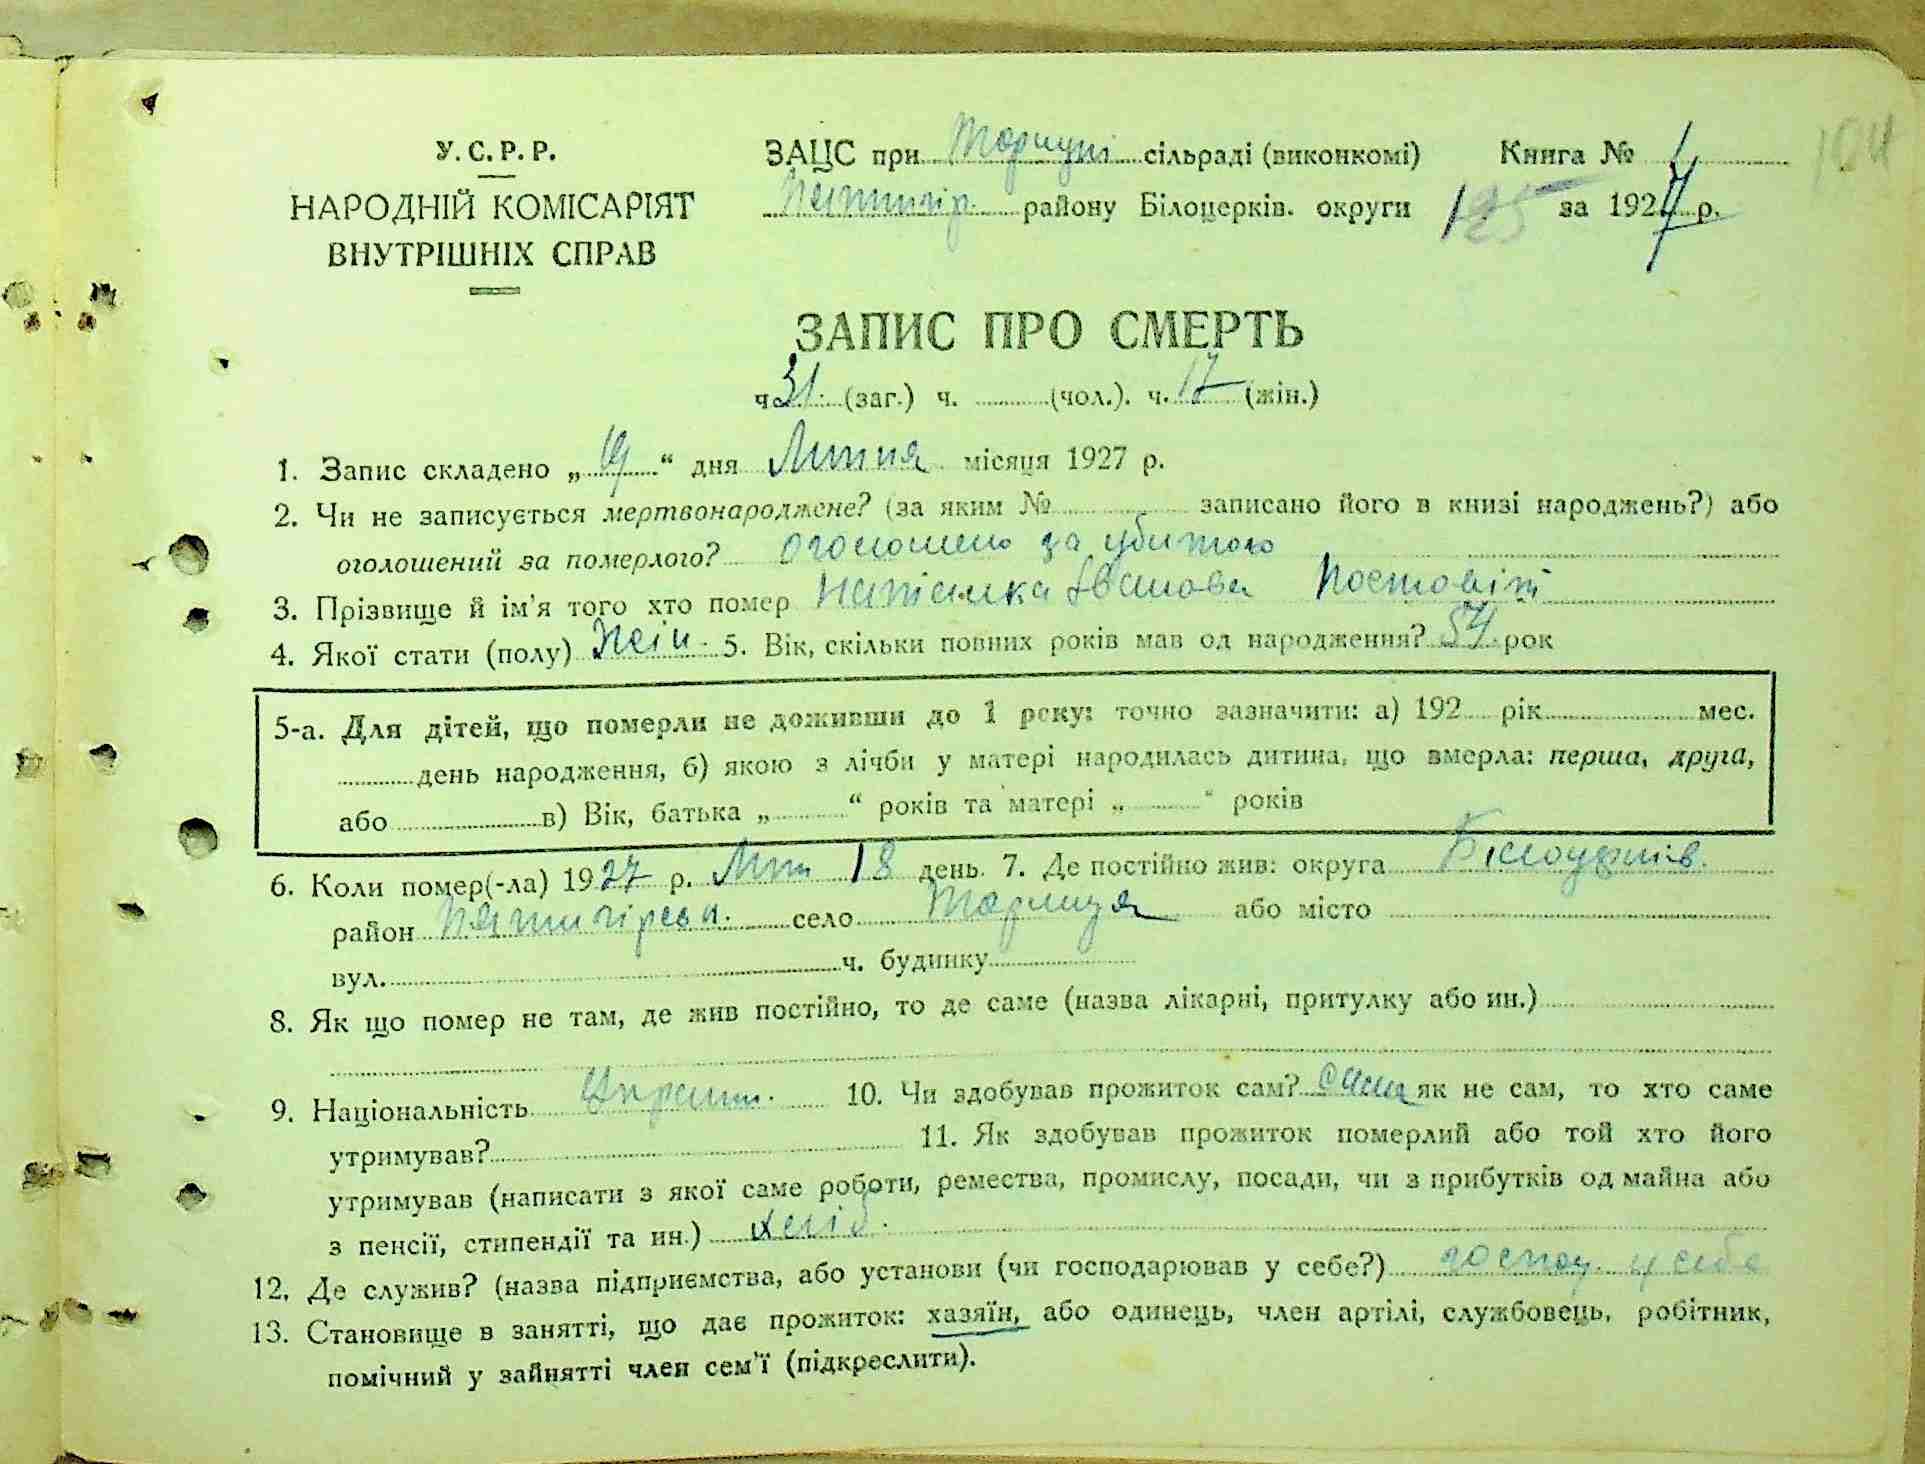 У.С.Р.Р.
НАРОДНІЙ КОМІСАРІЯТ
ВНУТРІШНІХ СПРАВ
ЗАЦС приТориці сільраді (виконкомі) Книга № 1
Пятигір. району Білоцерків. округи за 1927 р.
ЗАПИС ПРО СМЕРТЬ
ч. 31. (заг.) ч. (чол.). ч. 17 (жін.)
1. Запис складено „19“ дня Липня місяця 1927 р.
2. Чи не записується мертвонароджене? (за яким № записано його в книзі народжень?) або
оголошений за померлого? оголошено за
3. Прізвище й ім'я того хто помер Наталка Іванова
4. Якої стати (полу) жін. 5. Вік, скільки повних років мав од народження? 54 рок
5-а. Для дітей, що померли не доживши до 1 року: точно зазначити: а) 192 рік мес.
день народження, б) якою з лічби у матері народилась дитина, що вмерла: перша, друга,
або в) Вік, батька „ “ років та матері „ “ років
6. Коли помер(-ла) 1927 р. Лип 18 день 7. Де постійно жив: округа Білоцерків.
район Пятигірськ. село Ториця або місто
вул. ч. будинку
8. Як що помер не там, де жив постійно, то де саме (назва лікарні, притулку або ин.)
9. Національність Україн. 10. Чи здобував прожиток сам? сама як не сам, то хто саме
утримував? 11. Як здобував прожиток померлий або той хто його
утримував (написати з якої саме роботи, ремества, промислу, посади, чи з прибутків од майна або
з пенсії, стипендії та ин.) хліб.
12. Де служив? (назва підприємства, або установи (чи господарював у себе?) господ. у себе
13. Становище в занятті, що дає прожиток: хазяїн, або одинець, член артілі, службовець, робітник,
помічний у зайнятті член сем'ї (підкреслити).